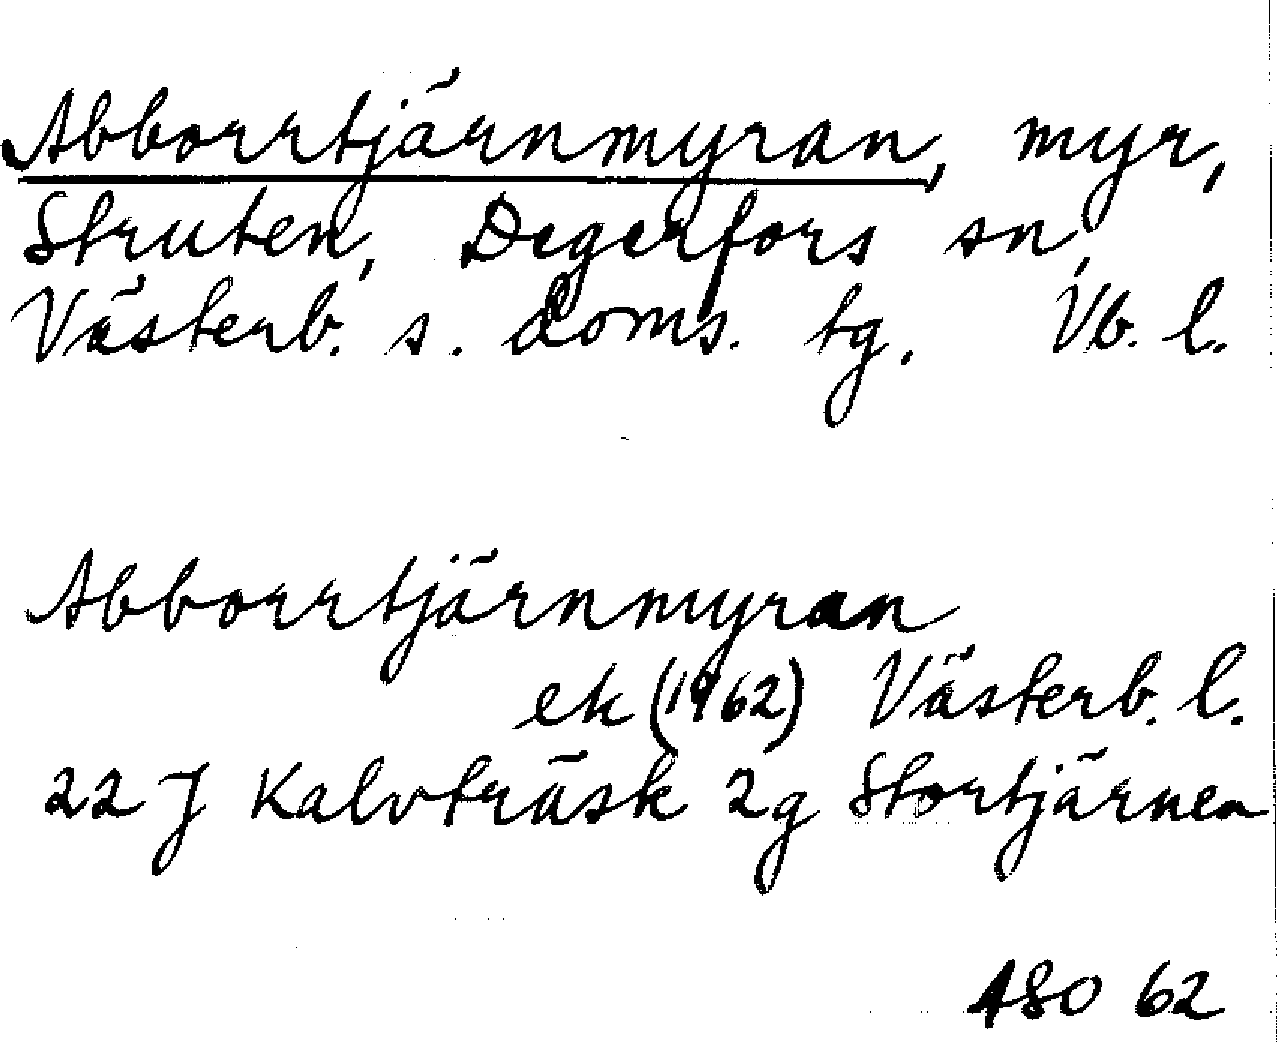 Abborrtjärnmyran, myr,
Struten, Degerfors sn,
Västerb. s. doms. tg. Vb. l.
Abborrtjärnmyran
ek (1962) Västerb. l.
22 J Kalvträsk 2g Stortjärnen
ASO 62